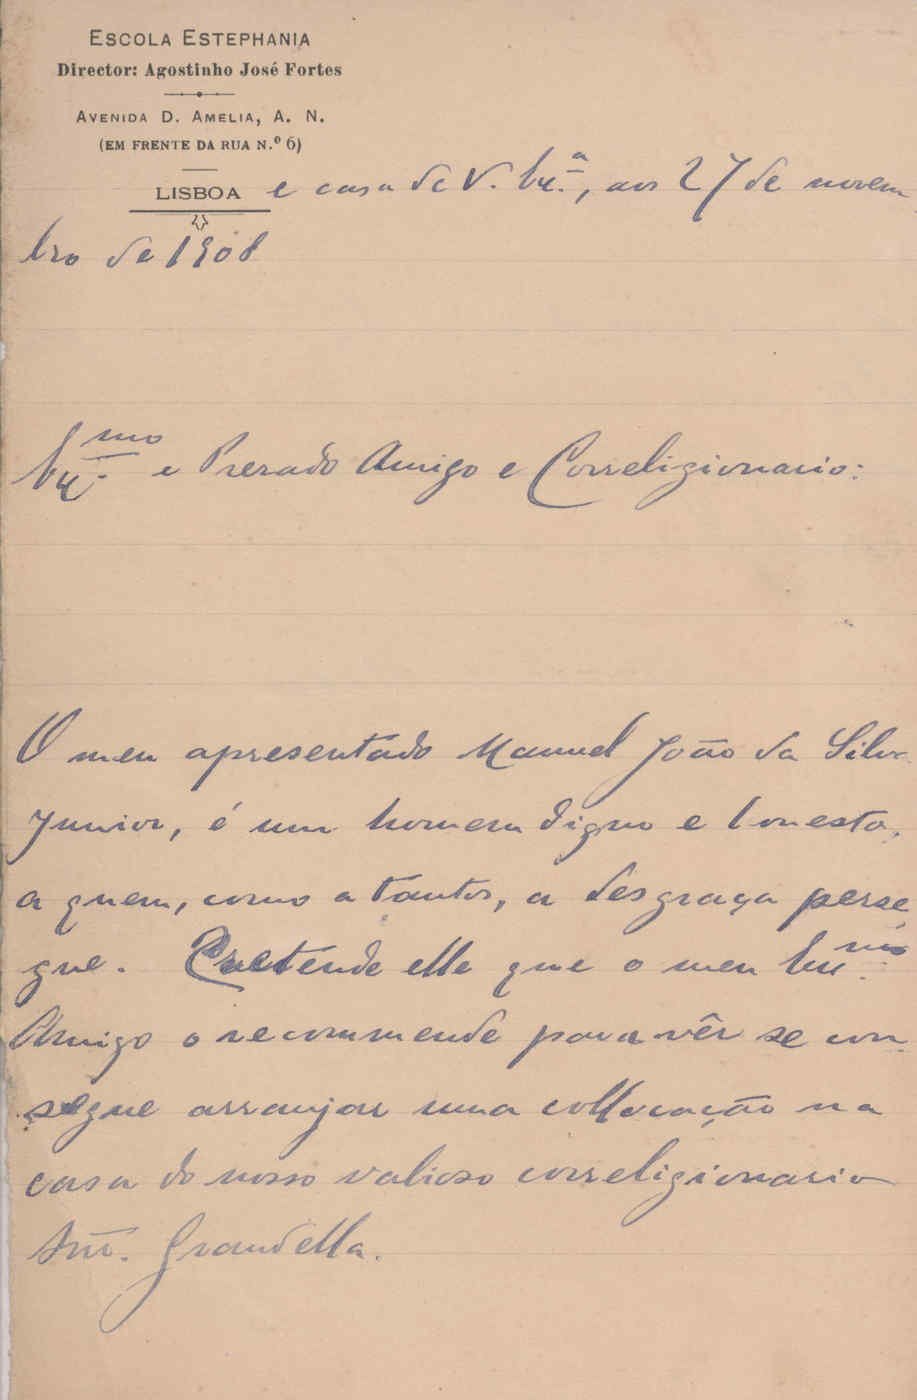 ESCOLA ESTEPHANIA
Director: Agostinho José Fortes
AVENIDA D. AMELIA, A. N.
(EM FRENTE DA RUA N.º 6)
LISBOA e casa de V. Ex.ª, aos 27 de novem
bro de 1908
Ex.mo e Prezado Amigo e Correligionario:
O meu apresentado Manuel João da Silva
Junior, é um homem digno e honesto,
a quem, como a tantos, a desgraça perse
gue. Pretende elle que o meu Ex.mo
Amigo o recommende para vêr se con
segue arranjar uma collocação na
casa do nosso valioso correligionario
Snr. Grandella.